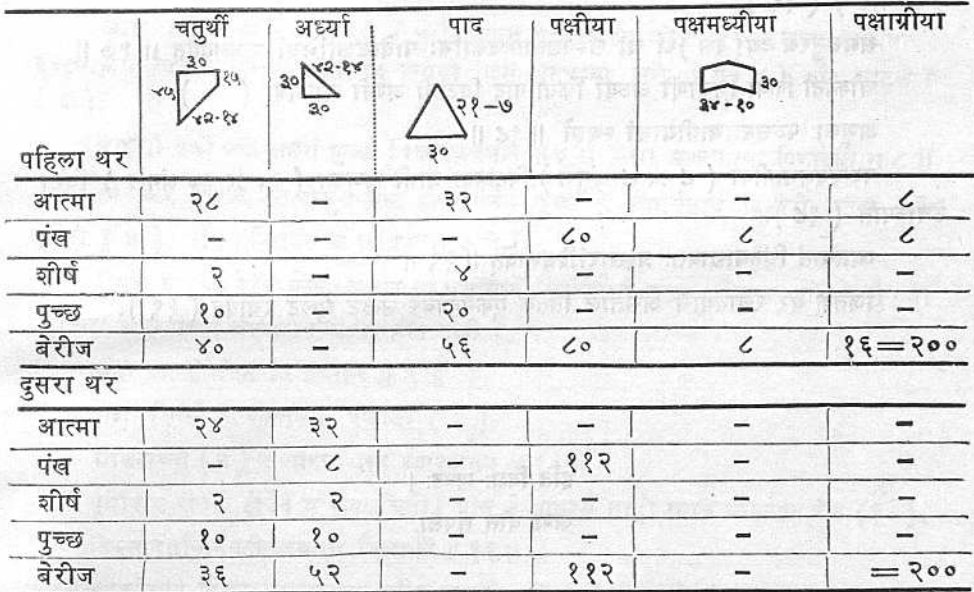 चतुर्थी अर्ध्या पाद पक्षीया पक्षमध्यीया पक्षाग्रीया
३० १५ ४५ ४२-१४
३० ४२-१४ ३०
२१-७ ३०
३० ३४-१०
पहिला थर
आत्मा २८ – ३२ – – ८
पंख – – – ८० ८ ८
शीर्ष २ – ४ – – –
पुच्छ १० – २० – – –
बेरीज ४० – ५६ ८० ८ १६=२००
दुसरा थर
आत्मा २४ ३२ – – – –
पंख – ८ – ११२ – –
शीर्ष २ २ – – – –
पुच्छ १० १० – – – –
बेरीज ३६ ५२ – ११२ – =२००